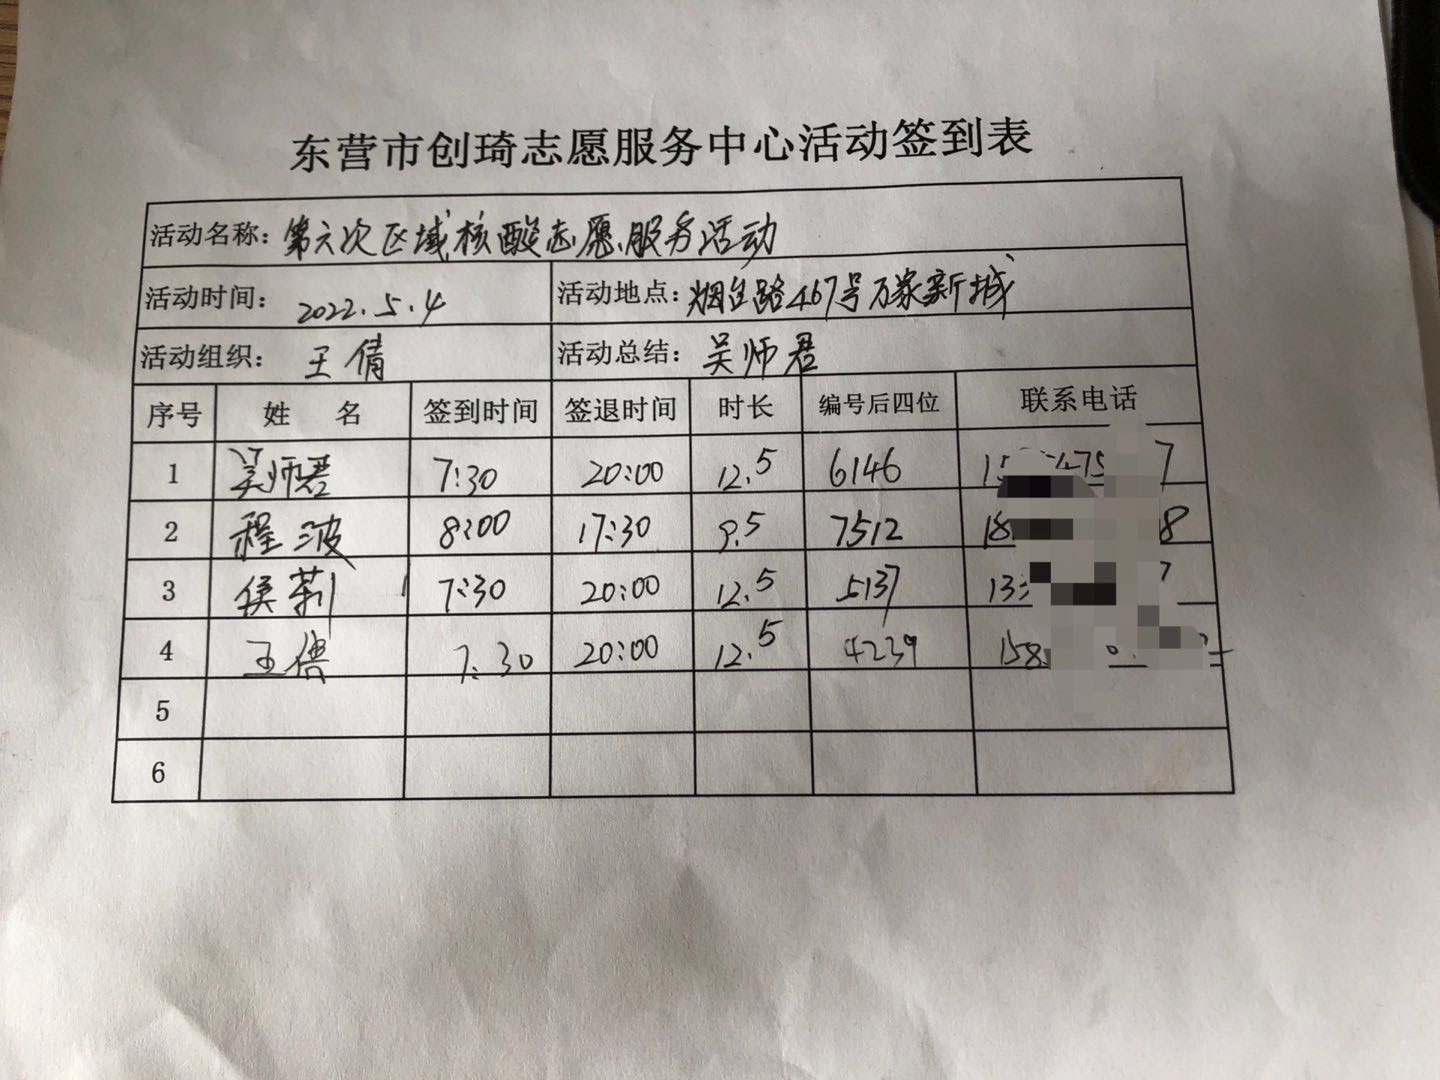 东营市创琦志愿服务中心活动签到表
活动名称: 第六次区域核酸志愿服务活动
活动时间: 2022.5.4 活动地点: 烟台路467号万家新城
活动组织: 王倩 活动总结: 吴师君
序号 姓 名 签到时间 签退时间 时长 编号后四位 联系电话
1 吴师君 7:30 20:00 12.5 6146
2 程波 8:00 17:30 9.5 7512
3 侯莉 7:30 20:00 12.5 5137
4 王倩 7:30 20:00 12.5 4239
5
6